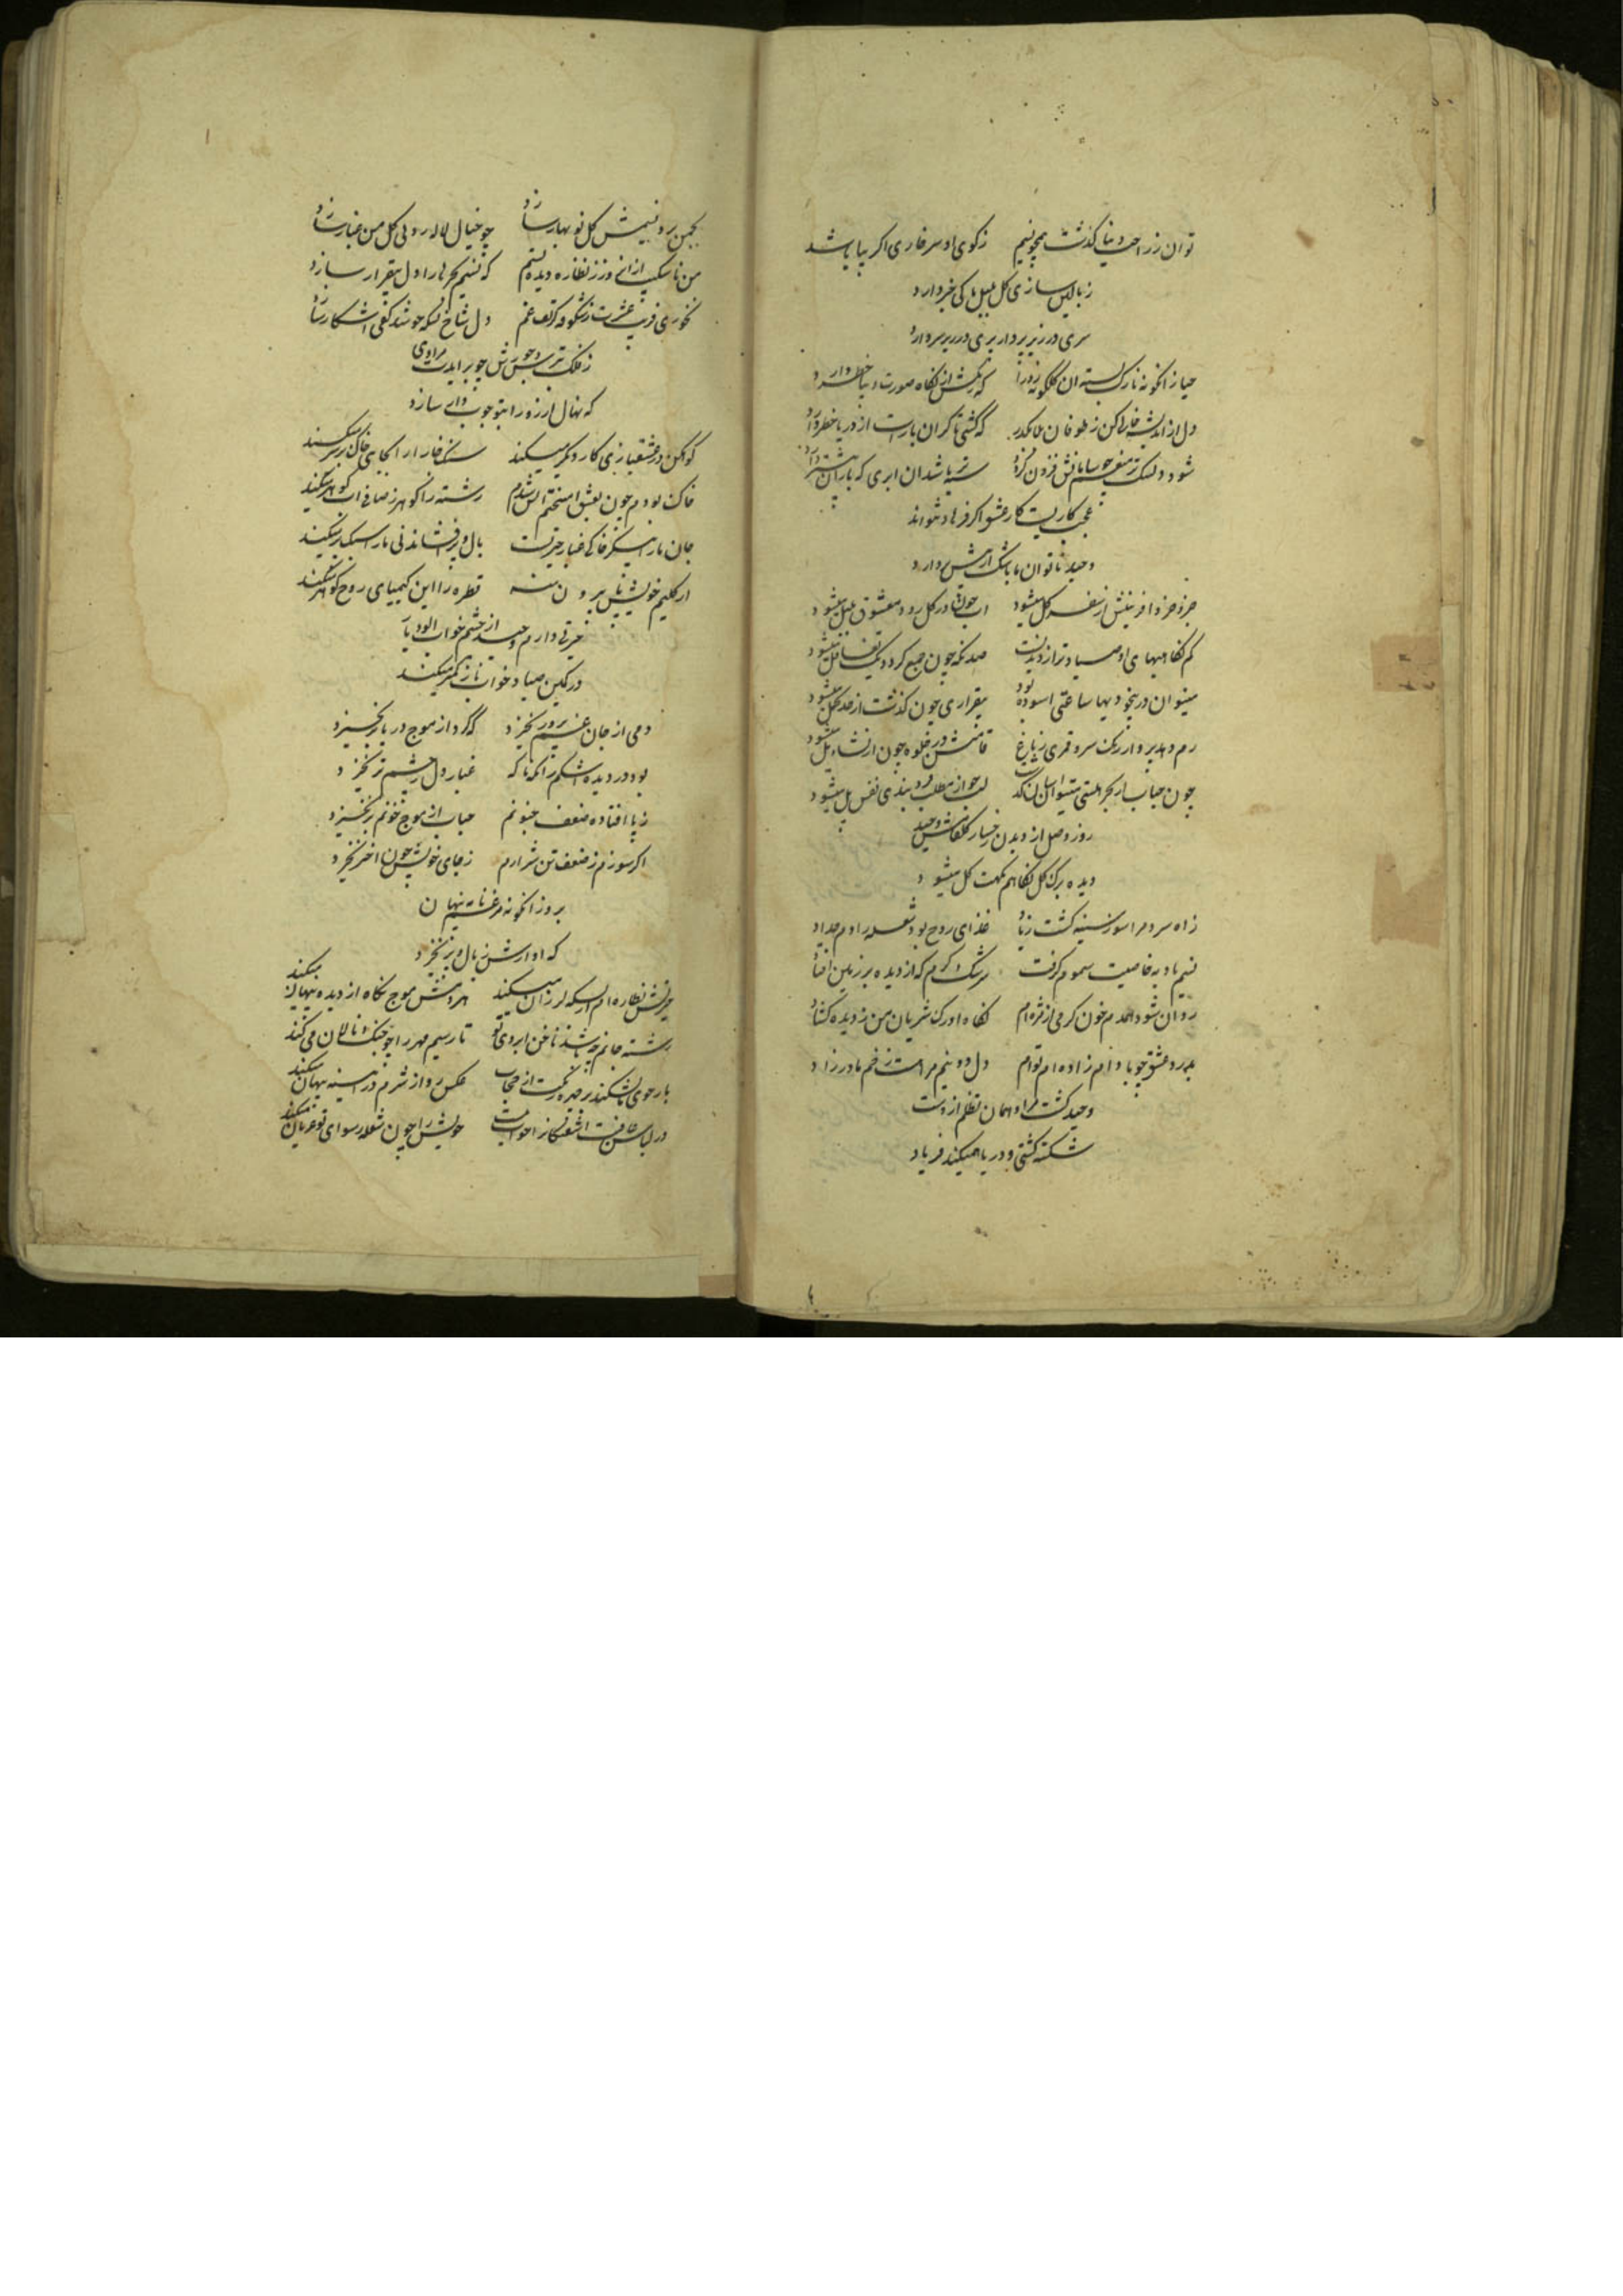 توان ز راحت دنیا گذشت همچو نسیم ز کوی او سر خاری اگر بپا باشد
ز بالین سازی گل بلبل ما کی خبر دارد
سری در زیر پر دارد پری در زیر سر دارد
حیا زانگونه نازک بسته آن گلگونه که رنگش از نگاه صورت دیبا خطر دارد
دل از اندیشه خالی کن ز طوفان بلا مگذر که کشتی تا گران بارست از دریا خطر دارد
شود چو سامانش فزون گردد سیه باشد آن ابری که باران بیشتر دارد
عجب کاریست کار عشق اگر فرهاد نتواند
وحید ناتوان با شک ازپیش بردارد
جزو جزو آفرینش از سفر کل میشود آب چون در گل رود معشوق بلبل میشود
کم نگاهیهای او صد نگه چون جمع گردد یک تغافل میشود
میتوان در بیخودیها ساعتی آسوده بود بیقراری چون گذشت از حد تحمل میشود
رم دهد پرواز رنگ سرو قمری را ز باغ قامتش در جلوه چون از نشاء مل میشود
چون حباب از بحر هستی میتوان آسان گذشت لب چو از مطلب فرو بندی نفس پل میشود
روز وصل از دیدن رخسار وحید
دیده برگ گل نگاهم نکهت گل میشود
ز آه سرد مرا سوز سینه گشت زیاد غذای روح بود شعله را دم حداد
نسیم باد به خاصیت سموم گرفت سرشک گرم که از دیده بر زمین افتاد
روان شود همه دم خون گرمی از مژه‌ام نگاه او رگ شریان من ز دیده گشاد
بدرد عشق چو بادام زاده‌ام توام دل دو نیم مرا هست زخم مادرزاد
وحید گشت مرا و همان تظلم ازوست
شکسته کشتی و دریا همیکند فریاد
بچمن رود نسیمش گل نو بهار سازد چو خیال لاله رویی گل من غبار سازد
من ناشکیب از آنرو ز نظاره دیده بستم که نسیم بحر ما را دل بیقرار سازد
نخوری فریب عشرت ز شکوفه کز تف غم دل شاخ بسکه جوشد کفی آشکار سازد
ز فلک وحید چو برآید مرادی
که نهال آرزو را بتو چوب دار سازد
کوهکن در عشقبازی کار دیگر میکند سنگ خارا را بجای خاک بر سر میکند
خاک بودم چون بعشق آمیختم آتش شدم رشته را گوهر ز صافی آب گوهر میکند
بال و پر افشاندنی بار سبکتر میکند
از گلیم خویش پا بیرون منه قطره را این کیمیای روح گوهر میکند
حیرتی دارم وحید از چشم خواب آلود یار
در کمین صیاد خواب ناز کمتر میکند
دمی از جان غم‌پرور نخیزد که گرد از موج دریا بر نخیزد
بود در دیده اشکم زآنکه ناگه غبار دل ز چشم تر نخیزد
ز پا افتاده ضعف جنونم حباب از موج خونم بر نخیزد
اگر سوزم ز ضعف تن شرارم ز جای خویش چون اخگر نخیزد
برو زانگونه مرغ نامه پنهان
که آوازش ز بال و پر نخیزد
حیرتش نظاره‌ام را بسکه لرزان میکند هر دمش موج نگاه از دیده پنهان میکند
رشته جانم چه باشد ناخن ابروی تو تار سیم مهر را چون چنگ نالان می‌کند
عکس رو از شرم در آیینه پنهان میکند
خویش را چون شعله رسوای تو عریان میکند